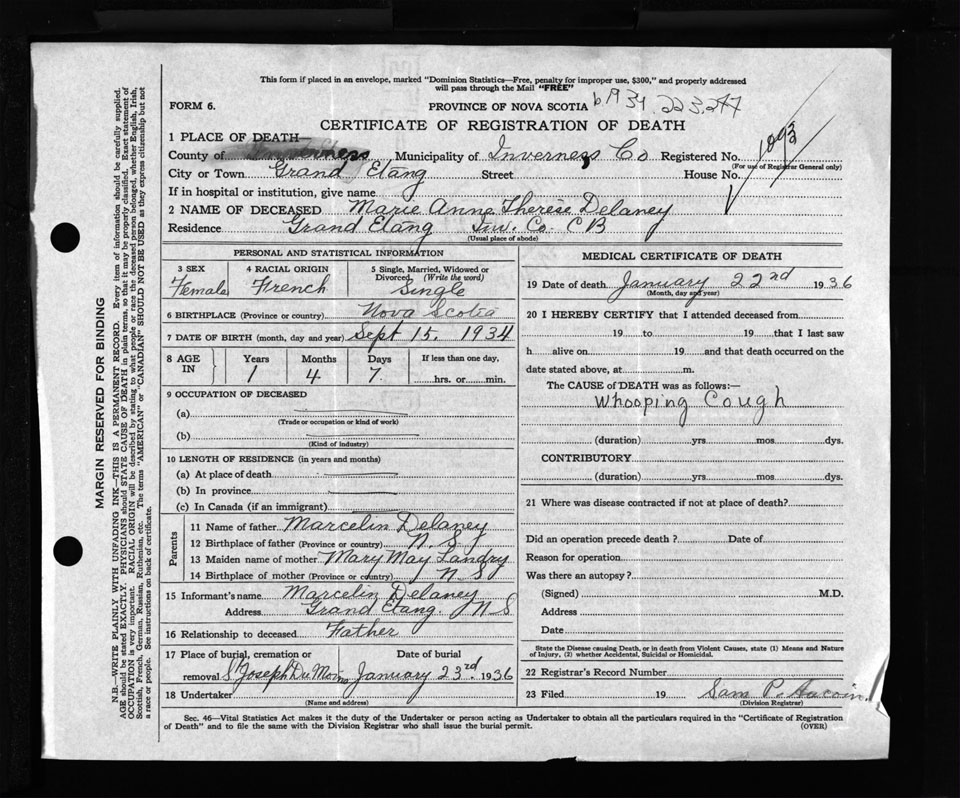 This form if placed in an envelope, marked "Dominion Statistics—Free, penalty for improper use, $300," and properly addressed
will pass through the Mail "FREE"
FORM 6.
PROVINCE OF NOVA SCOTIA
b 1934. 223,277
CERTIFICATE OF REGISTRATION OF DEATH
1 PLACE OF DEATH—
County of Inverness Municipality of Inverness Co Registered No.
(For use of Registrar General only)
City or Town Grand Etang Street House No.
If in hospital or institution, give name
2 NAME OF DECEASED Marie Anne Therese Delaney
Residence Grand Etang Inv. Co. C B
(Usual place of abode)
PERSONAL AND STATISTICAL INFORMATION
3 SEX 4 RACIAL ORIGIN 5 Single, Married, Widowed or
Divorced. (Write the word)
Female French Single
6 BIRTHPLACE (Province or country) Nova Scotia
7 DATE OF BIRTH (month, day and year) Sept 15. 1934
8 AGE IN Years Months Days If less than one day,
1 4 7. hrs. or min.
9 OCCUPATION OF DECEASED
(a)
(Trade or occupation or kind of work)
(b)
(Kind of industry)
10 LENGTH OF RESIDENCE (in years and months)
(a) At place of death
(b) In province
(c) In Canada (if an immigrant)
Parents
11 Name of father Marcelin Delaney
12 Birthplace of father (Province or country) N. S
13 Maiden name of mother Mary May Landry
14 Birthplace of mother (Province or country) N S
15 Informant's name Marcelin Delaney
Address Grand Etang. N S
16 Relationship to deceased Father
17 Place of burial, cremation or Date of burial
removal St Joseph Du Moine January 23rd. 1936
18 Undertaker
(Name and address)
MEDICAL CERTIFICATE OF DEATH
19 Date of death January 22nd 1936
(Month, day and year)
20 I HEREBY CERTIFY that I attended deceased from
19 to 19 that I last saw
h alive on 19 and that death occurred on the
date stated above, at m.
The CAUSE of DEATH was as follows:—
Whooping Cough
(duration) yrs mos dys.
CONTRIBUTORY
(duration) yrs mos dys.
21 Where was disease contracted if not at place of death?
Did an operation precede death ? Date of
Reason for operation
Was there an autopsy ?
(Signed) M.D.
Address
Date
State the Disease causing Death, or in death from Violent Causes, state (1) Means and Nature
of Injury, (2) whether Accidental, Suicidal or Homicidal.
22 Registrar's Record Number
23 Filed 19 Sam P. Aucoin
(Division Registrar)
Sec. 46—Vital Statistics Act makes it the duty of the Undertaker or person acting as Undertaker to obtain all the particulars required in the "Certificate of Registration
of Death" and to file the same with the Division Registrar who shall issue the burial permit.
(OVER)
MARGIN RESERVED FOR BINDING
N.B.—WRITE PLAINLY WITH UNFADING INK—THIS IS A PERMANENT RECORD. Every item of information should be carefully supplied.
AGE should be stated EXACTLY. PHYSICIANS should STATE CAUSE OF DEATH in plain terms, so that it may be properly classified. Exact statement of
OCCUPATION is very important. RACIAL ORIGIN will be described by stating to what people or race the deceased person belonged, whether English, Irish,
Scottish, French, German, Russian, Ruthenian, etc. The terms "AMERICAN" or "CANADIAN" SHOULD NOT BE USED as they express citizenship but not
a race or people. See instructions on back of certificate.